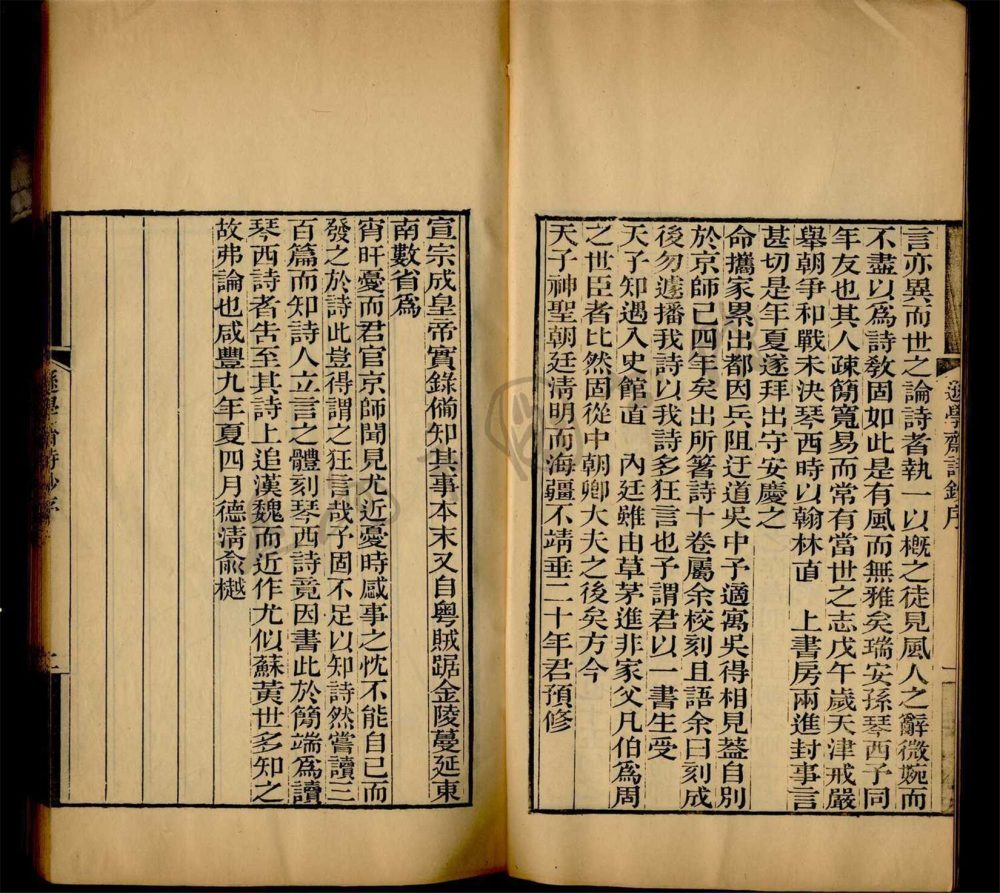 言亦異而世之論詩者執一以槪之徒見風人之辭微婉而
不盡以爲詩敎固如此是有風而無雅矣瑞安孫琴西子同
年友也其人疎簡寬易而常有當世之志戊午歲天津戒嚴
舉朝爭和戰未決琴西時以翰林直　上書房兩進封事言
甚切是年夏遂拜出守安慶之
命攜家累出都因兵阻迂道吳中予適寓吳得相見蓋自別
於京師已四年矣出所箸詩十卷屬余校刻且語余曰刻成
後勿遽播我詩以我詩多狂言也予謂君以一書生受
天子知遇入史館直　內廷雖由草茅進非家父凡伯爲周
之世臣者比然固從中朝卿大夫之後矣方今
天子神聖朝廷淸明而海疆不靖垂二十年君預修
遜學齋詩鈔序
一
宣宗成皇帝實錄備知其事本末又自粵賊踞金陵蔓延東
南數省爲
宵旰憂而君官京師聞見尤近憂時感事之忱不能自已而
發之於詩此豈得謂之狂言哉予固不足以知詩然嘗讀三
百篇而知詩人立言之體刻琴西詩竟因書此於簡端爲讀
琴西詩者告至其詩上追漢魏而近作尤似蘇黃世多知之
故弗論也咸豐九年夏四月德淸兪樾
遜學齋詩鈔序
二